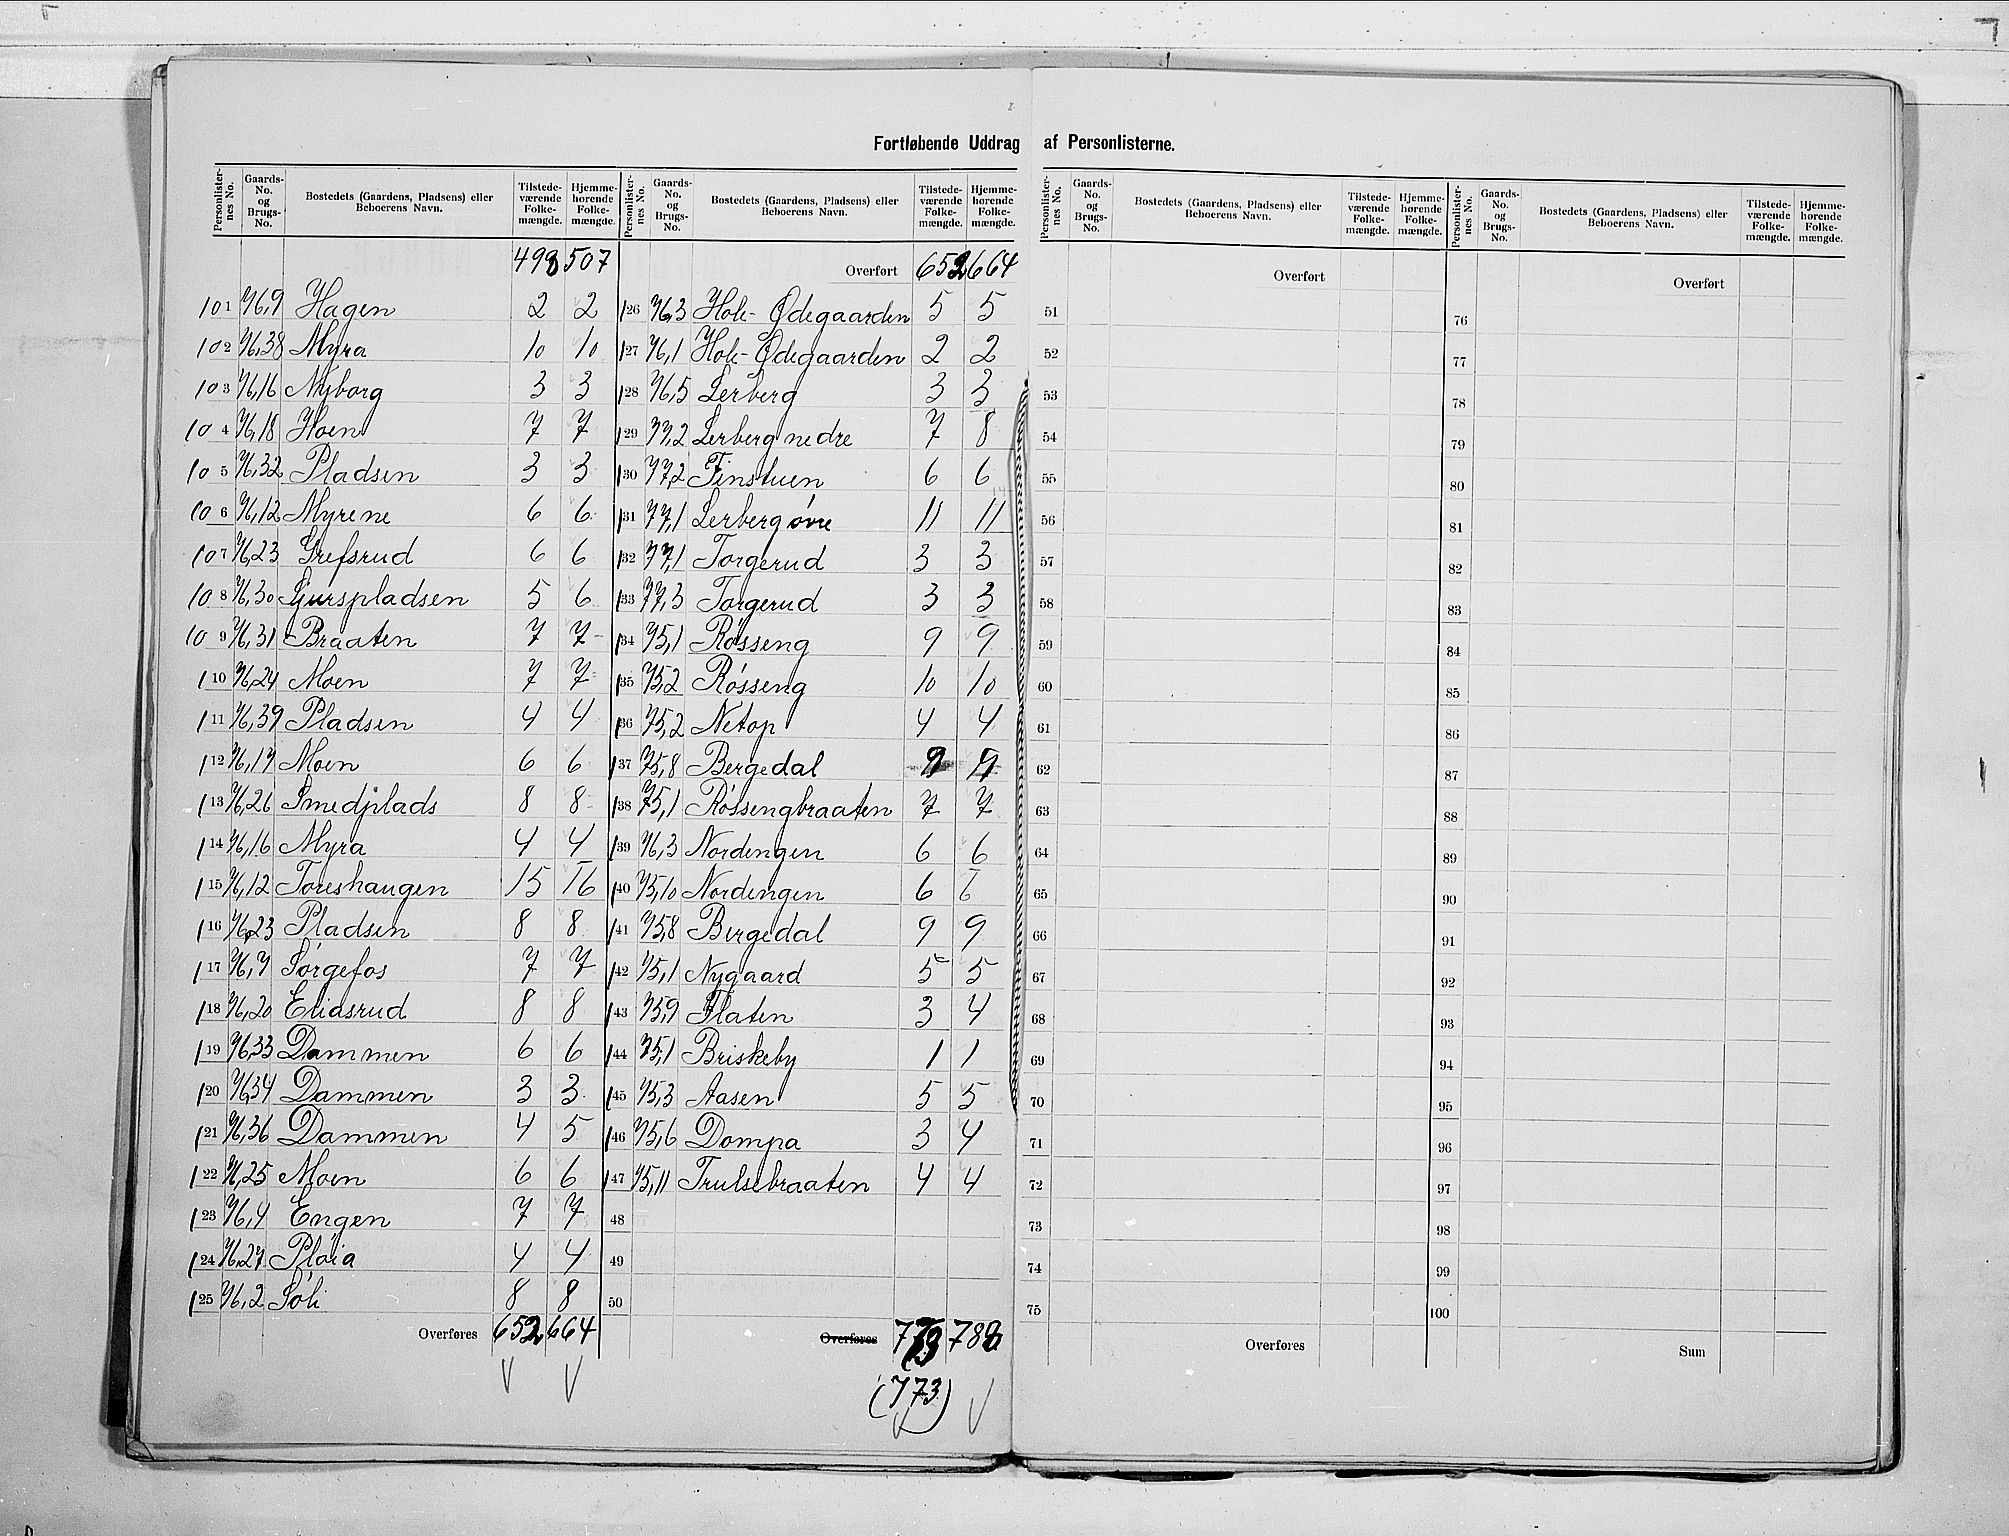 Fortløbende Uddrag af Personlisterne.
Personlisternes No. | Gaards-No. og Brugs-No. | Bostedets (Gaardens, Pladsens) eller Beboerens Navn. | Tilstedeværende Folkemængde. | Hjemmehørende Folkemængde.
498 507
101 76,9 Hagen 2 2
102 76,38 Myra 10 10
103 76,16 Nyborg 3 3
104 76,18 Hoen 7 7
105 76,32 Pladsen 3 3
106 76,12 Myrene 6 6
107 76,23 Grefsrud 6 6
108 76,30 Gjurspladsen 5 6
109 76,31 Braaten 7 7
110 76,24 Moen 7 7
111 76,39 Pladsen 4 4
112 76,17 Moen 6 6
113 76,26 Smedjplads 8 8
114 76,16 Myra 4 4
115 76,12 Toreshaugen 15 16
116 76,23 Pladsen 8 8
117 76,7 Sørgefos 7 7
118 76,20 Eliasrud 8 8
119 76,33 Dammen 6 6
120 76,34 Dammen 3 3
121 76,36 Dammen 4 5
122 76,25 Moen 6 6
123 76,4 Engen 7 7
124 76,27 Pløia 4 4
125 76,2 Søli 8 8
Overføres 652 664
Personlisternes No. | Gaards-No. og Brugs-No. | Bostedets (Gaardens, Pladsens) eller Beboerens Navn. | Tilstedeværende Folkemængde. | Hjemmehørende Folkemængde.
Overført 652 664
126 76,3 Hole-Ødegaarden 5 5
127 76,1 Hole-Ødegaarden 2 2
128 76,5 Lerberg 3 3
129 77,2 Lerberg nedre 7 8
130 77,2 Finstuen 6 6
131 77,1 Lerberg øvre 11 11
132 77,1 Torgerud 3 3
133 77,3 Torgerud 3 3
134 75,1 Røsseng 9 9
135 75,2 Røsseng 10 10
136 75,2 Netop 4 4
137 75,8 Bergedal
138 75,1 Røssengbraaten 7 7
139 76,3 Nordengen 6 6
140 75,10 Nordengen 6 6
141 75,8 Bergedal 9 9
142 75,1 Nygaard 5 5
143 75,9 Flaten 3 4
144 75,1 Briskeby 1 1
145 75,3 Aasen 5 5
146 75,6 Dompa 3 4
147 75,11 Trulsebraaten 4 4
48
49
50
Overføres 773 788
(773)
Personlisternes No. | Gaards-No. og Brugs-No. | Bostedets (Gaardens, Pladsens) eller Beboerens Navn. | Tilstedeværende Folkemængde. | Hjemmehørende Folkemængde.
Overført
51
52
53
54
55
56
57
58
59
60
61
62
63
64
65
66
67
68
69
70
71
72
73
74
75
Overføres
Personlisternes No. | Gaards-No. og Brugs-No. | Bostedets (Gaardens, Pladsens) eller Beboerens Navn. | Tilstedeværende Folkemængde. | Hjemmehørende Folkemængde.
Overført
76
77
78
79
80
81
82
83
84
85
86
87
88
89
90
91
92
93
94
95
96
97
98
99
100
Sum